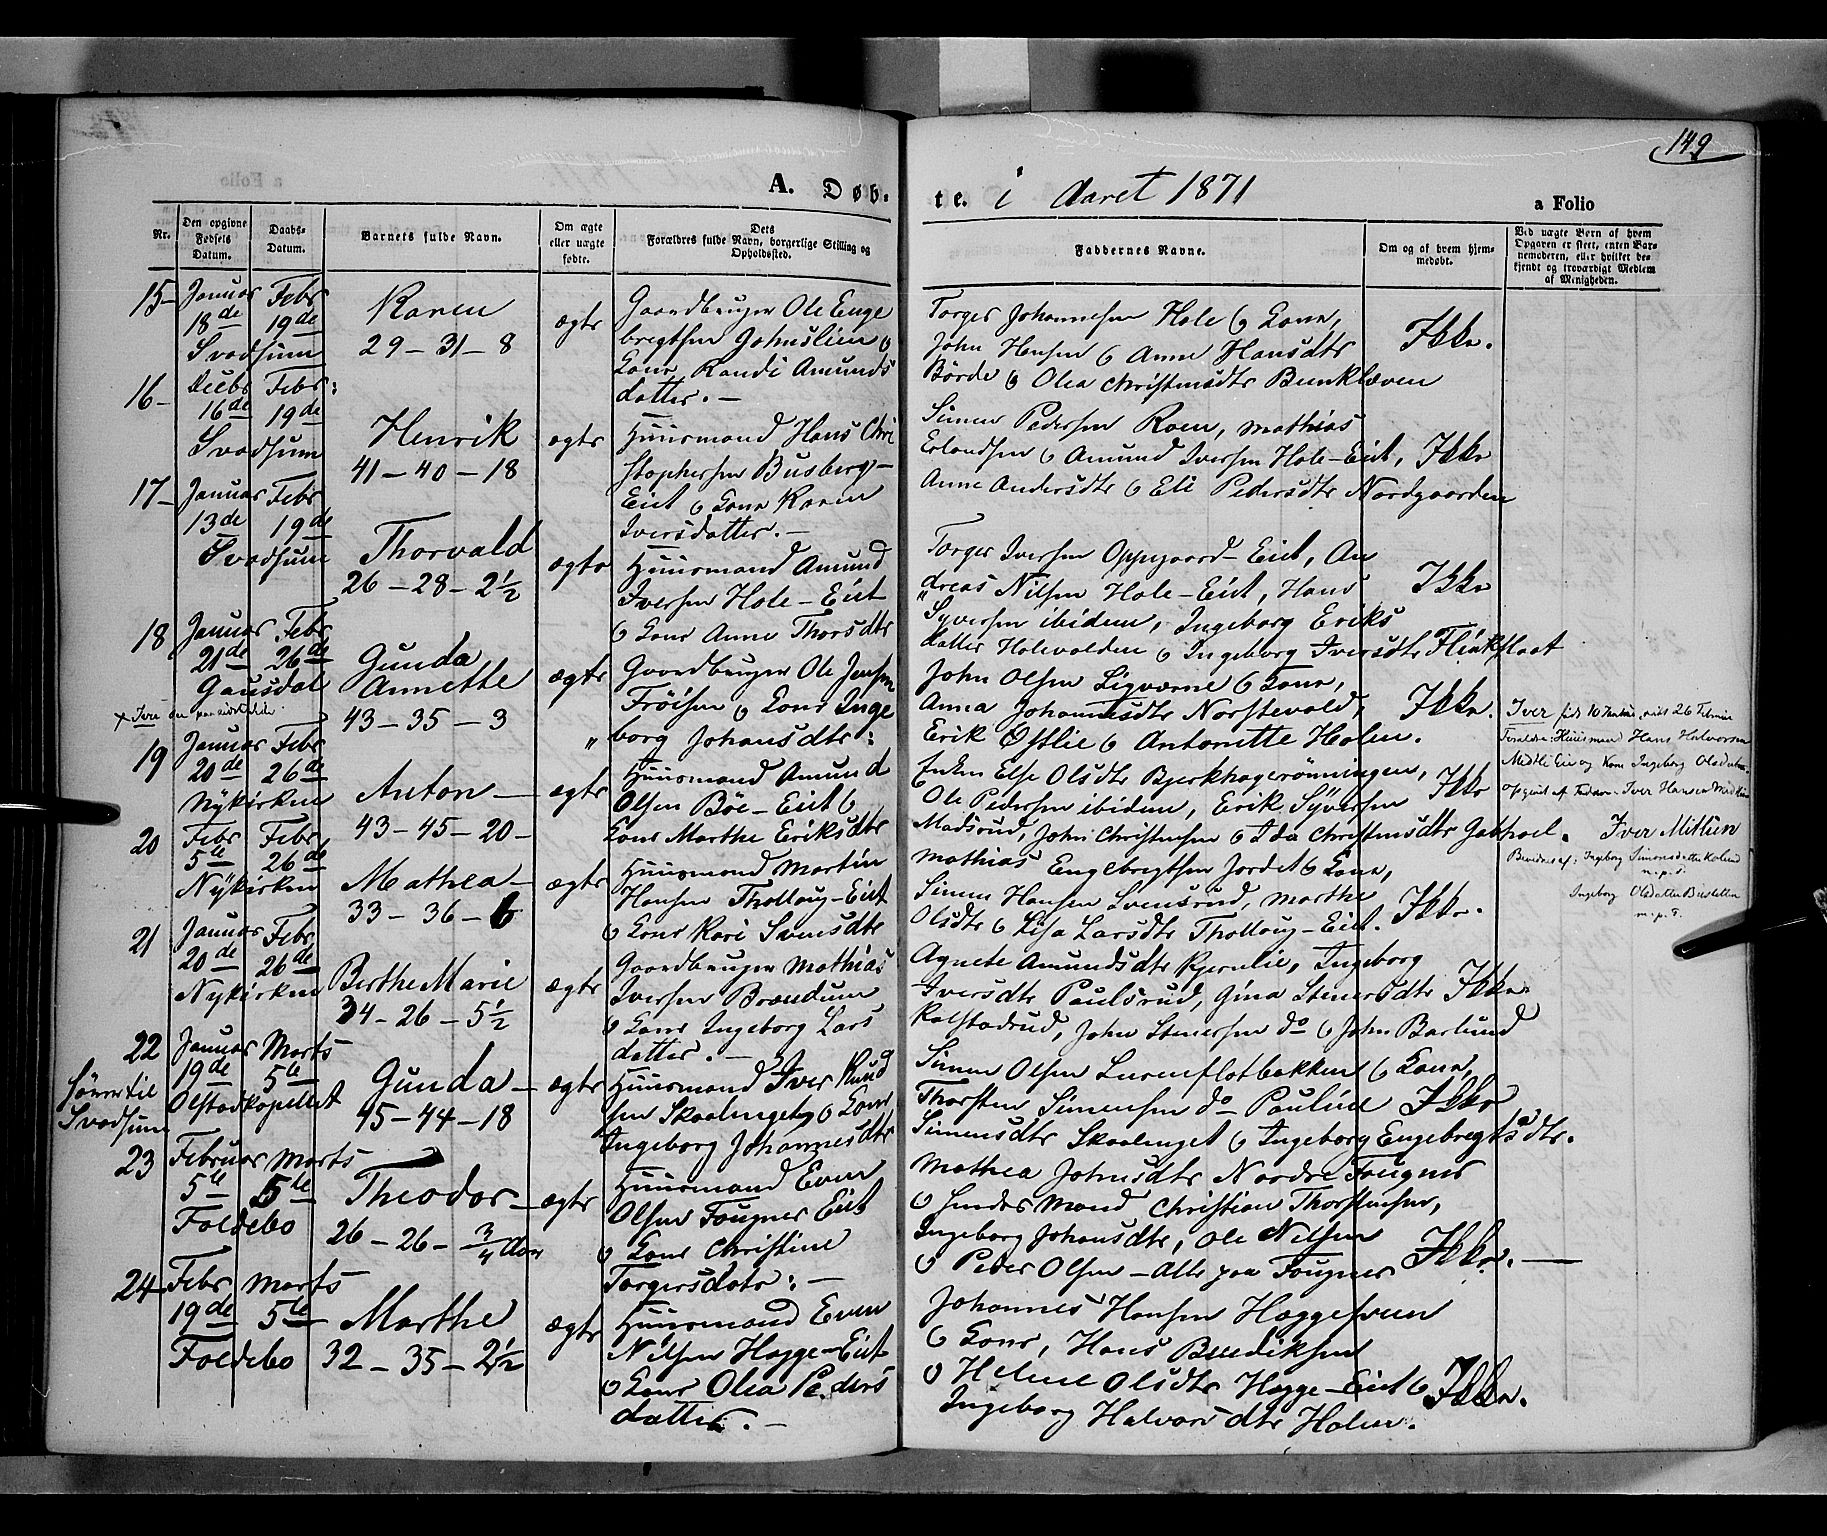 149
A. Døb-
te. i Aaret 1871
a Folio
Nr.
Den opgivne
Fødsels
Datum.
Daabs-
Datum.
Barnets fulde Navn.
Om ægte
eller uægte
fødte.
Dets
Forældres fulde Navn, borgerlige Stilling og
Opholdssted.
Faddernes Navne.
Om og af hvem hjem-
medøbt.
Ved uægte Børn af hvem
Opgaven er skeet, enten Bar-
nemoderen, eller hvilket be-
kjendt og troværdigt Medlem
af Menigheden.
15-
Januar Febr
18de 19de
Svadsum
Karen
29-31-8
ægte
Gaardbruger Ole Enge
bregtsen Johnslien o
Kone Randi Amunds
datter. -
Torger Johannesen Hole o Kone,
John Hansen o Anne Hansdtr
Börde o Olea Christensdtr Bunklöven
Ikke.
16-
Decbr Febr:
16de 19de
Svadsum
Henrik
41-40-18
ægte
Huusmand Hans Chri
stophersen Busberg-
Eiet o Kone Karen
Iversdatter. -
Simen Pedersen Roen, Mathias
Erlandsen o Amund Iversen Hole-Eiet,
Anne Andersdtr o Eli Pedersdtr Nordgaarden
Ikke
17-
Januar Febr
13de 19de
Svadsum
Thorvald
26-28-2½
ægte
Huusmand Amund
Iversen Hole-Eiet
o Kone Anne Thorsdtr
Torger Iversen Oppegaard-Eiet, An
dreas Nilsen Hole-Eiet, Hans
Syversen ibidem, Ingeborg Eriks
datter Holevolden o Ingeborg Iversdtr Flinkfloat
Ikke
18
Januar Febr
21de 26de
Gausdal
Gunda
Annette
43-35-3
ægte
Gaardbruger Ole Jensen
Fröisen o Kone Inge
borg Johansdtr:
John Olsen Sigværne o Kone,
Anna Johannesdtr Norstevold,
Erik Østlie o Antonette Holen.
Ikke.
19
Januar Febr
20de 26de
Nykirken
Anton -
43-45-20-
ægte
Huusmand Amund
Olsen Böe-Eiet o
Kone Marthe Eriksdtr
Enken Else Olsdtr Bjerkhagerönningen,
Ole Pedersen ibidem, Erik Syversen
Madsrud, John Christensen o Ida Christensdtr
Ikke
Iver
26 Februar
Huusmand Hans Halvorsen
Iver Mitlien
m.p.s.
m.p.s.
20
Febr Febr
5te 26de
Nykirken
Mathea -
33-36-6
ægte
Huusmand Martin
Hansen Thollaug-Eiet
o Kone Kari Svensdtr
Mathias Engebregtsen Jordet o Kone,
Simen Hansen Svensrud, Marthe
Olsdtr o Lisa Larsdtr Thollaug-Eiet.
Ikke.
21
Januar Febr
20de 26de
Nykirken
Berthe Marie
34-26-5½
ægte
Gaardbruger Mathias
Iversen Brændum
o Kone Ingeborg Lars
datter. -
Agnete Amundsdtr Kjernlie, Ingeborg
Iversdtr Paulsrud, Gina Stenersdtr
Kalstadrud, John Stenersen do o John Barlund
Ikke.
22
Januar Marts
19de 5te
Olstadkapellet
hører til
Svadsum
Gunda -
45-44-18
ægte
Huusmand Iver Knud
sen Skaalenget o Kone
Ingeborg Johannesdtr
Simen Olsen Lurenflotbakken o Kone,
Thorsten Simensen do Pauline
Simensdtr Skaalenget o Ingeborg Engebregtsdtr.
Ikke
23
Februar Marts
5te 5te
Foldebo
Theodor -
26-26-¾
ægte
Huusmand Even
Olsen Fougner Eiet
o Kone Christine
Torgersdatr: -
Mathea Johnsdtr Nordre Fougner
o hendes Mand Christian Thorstensen,
Ingeborg Johansdtr, Ole Nilsen
o Peder Olsen - Alle paa Fougner
Ikke. -
24
Febr Marts
19de 5te
Foldebo
Marthe
32-35-2½
ægte
Huusmand Even
Nilsen Hagge-Eiet
o Kone Olea Peders
datter. -
Johannes Hansen Haggesveen
o Kone, Hans Bendiksen
o Helene Olsdtr Hagge-Eiet o
Ingeborg Halvorsdtr Holen.
Ikke.